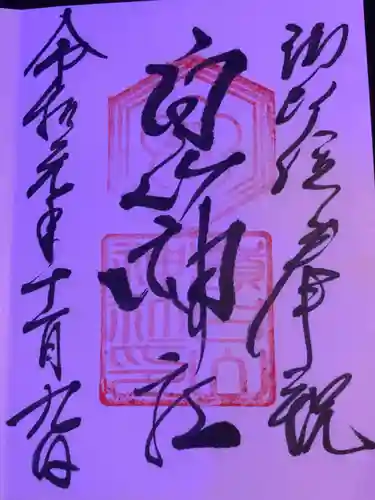 御即位奉祝
白山神社
令和元年十一月九日